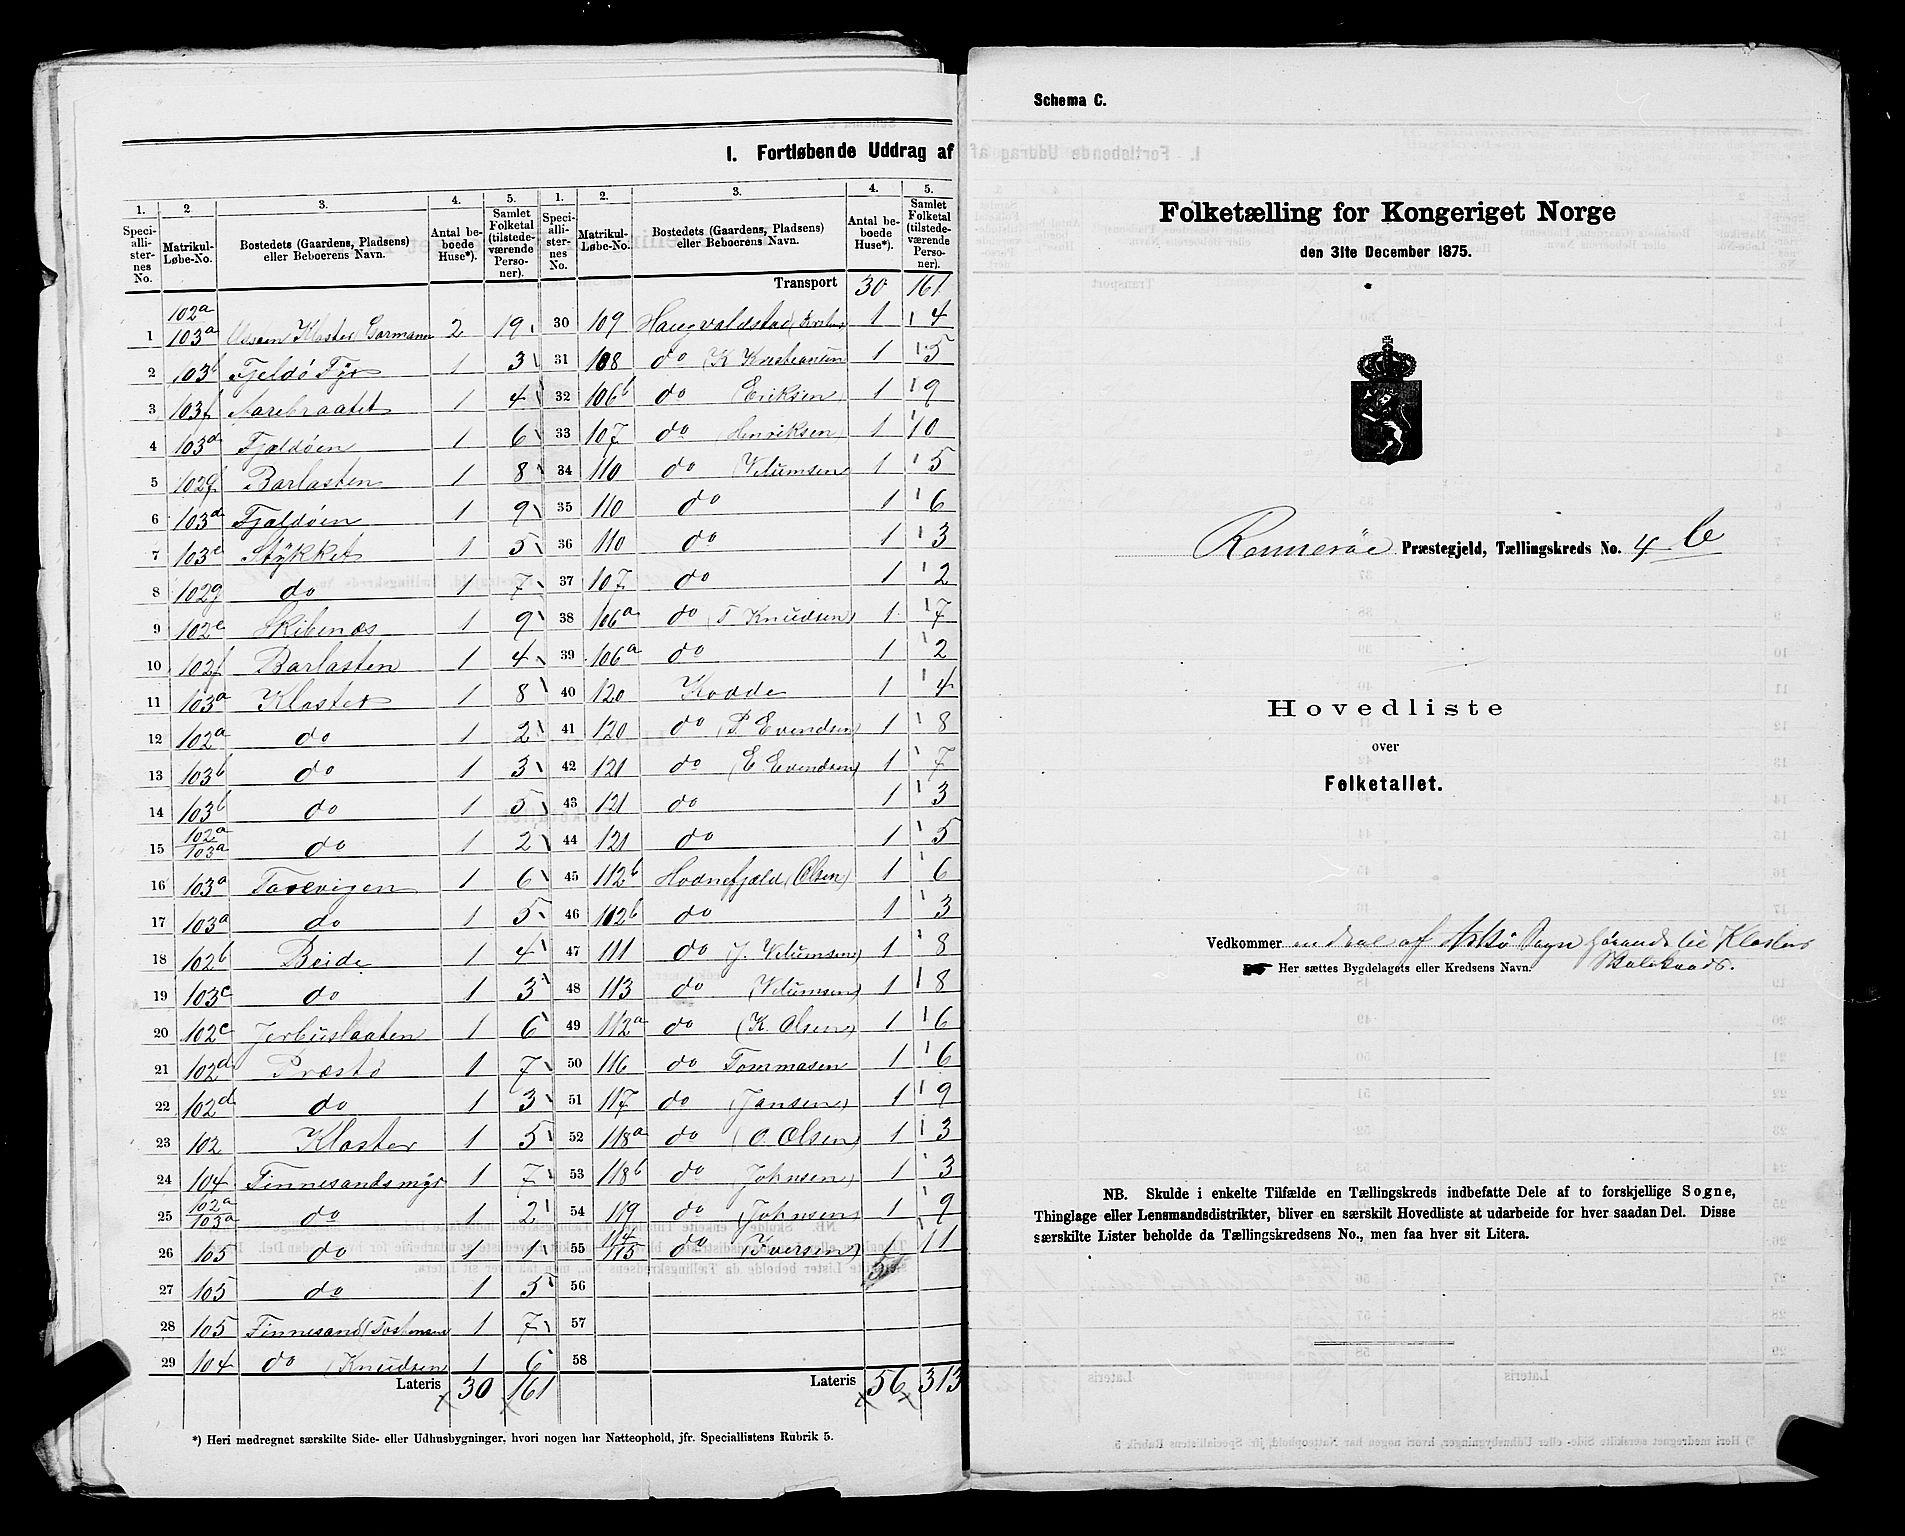 I. Fortløbende Uddrag af
1. 2 3. 4. 5. 1. 2. 3. 4. 5.
Speciallisternes No. Matrikul-Løbe-No. Bostedets (Gaardens, Pladsens) eller Beboerens Navn. Antal beboede Huse*). Samlet Folketal (tilstedeværende Personer). Speciallisternes No. Matrikul-Løbe-No. Bostedets (Gaardens, Pladsens) eller Beboerens Navn. Antal beboede Huse*). Samlet Folketal (tilstedeværende Personer).
Transport 30 161
1 102a 103a Utstein Kloster (Garmann 2 19
2 103b Fjeldø Fyr 1 3
3 103f Aarebraatet 1 4
4 103d Fjældøen 1 6
5 102f Barlasten 1 8
6 103d Fjældøen 1 9
7 103e Stykket 1 5
8 102g do 1 7
9 102e Skibenæs 1 9
10 102f Barlasten 1 4
11 103a Kloster 1 8
12 102a do 1 2
13 103b do 1 3
14 103b do 1 5
15 102a 103a do 1 2
16 103a Tarevigen 1 6
17 103a do 1 5
18 102b Beide 1 4
19 103c do 1 3
20 102c Jerbuslaaten 1 6
21 102d Præstø 1 7
22 102d do 1 3
23 102 Kloster 1 5
24 104 Finnesandsmyr 1 7
25 102a 103a do 1 2
26 105 do 1 1
27 105 do 1 5
28 105 Finnesand (Tostensen 1 7
29 104 do (Knudsen 1 6
Lateris 30 161
30 109 Haugvaldstad 1 4
31 108 do (K Kristiansen 1 5
32 106b do Eriksen) 1 9
33 107 do (Henriksen) 1 10
34 110 do (Velumsen 1 5
35 110 do 1 6
36 110 do 1 3
37 107 do 1 2
38 106a do (T Knudsen) 1 7
39 106a do 1 2
40 120 Kodde 1 4
41 120 do (P. Evendsen) 1 8
42 121 do (E Evendsen) 1 7
43 121 do 1 3
44 121 do 1 5
45 112b Hodnefjæld (Olsen) 1 6
46 112b do 1 3
47 111 do (J. Velumsen) 1 8
48 113 do (Velumsen) 1 8
49 112a do (K. Olsen) 1 6
50 116 do Tommasen 1 6
51 117 do (Jansen) 1 9
52 118a do (O. Olsen) 1 3
53 118b do Johnsen) 1 3
54 119 do (Johnsen) 1 9
55 114 115 do (Iversen) 1 11
56
57
58
Lateris 56 313
*) Heri medregnet særskilte Side- eller Udhusbygninger, hvori nogen har Natteophold, jfr. Speciallistens Rubrik 5.
Schema C.
Folketælling for Kongeriget Norge
den 31te December 1875.
Rennesøe Præstegjeld, Tællingskreds No. 4 b
Hovedliste
over
Folketallet.
Vedkommer en deel af Askø Sogn hørende til Kloster
Her sættes Bygdelagets eller Kredsens Navn.
NB. Skulde i enkelte Tilfælde en Tællingskreds indbefatte Dele af to forskjellige Sogne,
Thinglage eller Lensmandsdistrikter, bliver en særskilt Hovedliste at udarbeide for hver saadan Del. Disse
særskilte Lister beholde da Tællingskredsens No., men faa hver sit Litera.